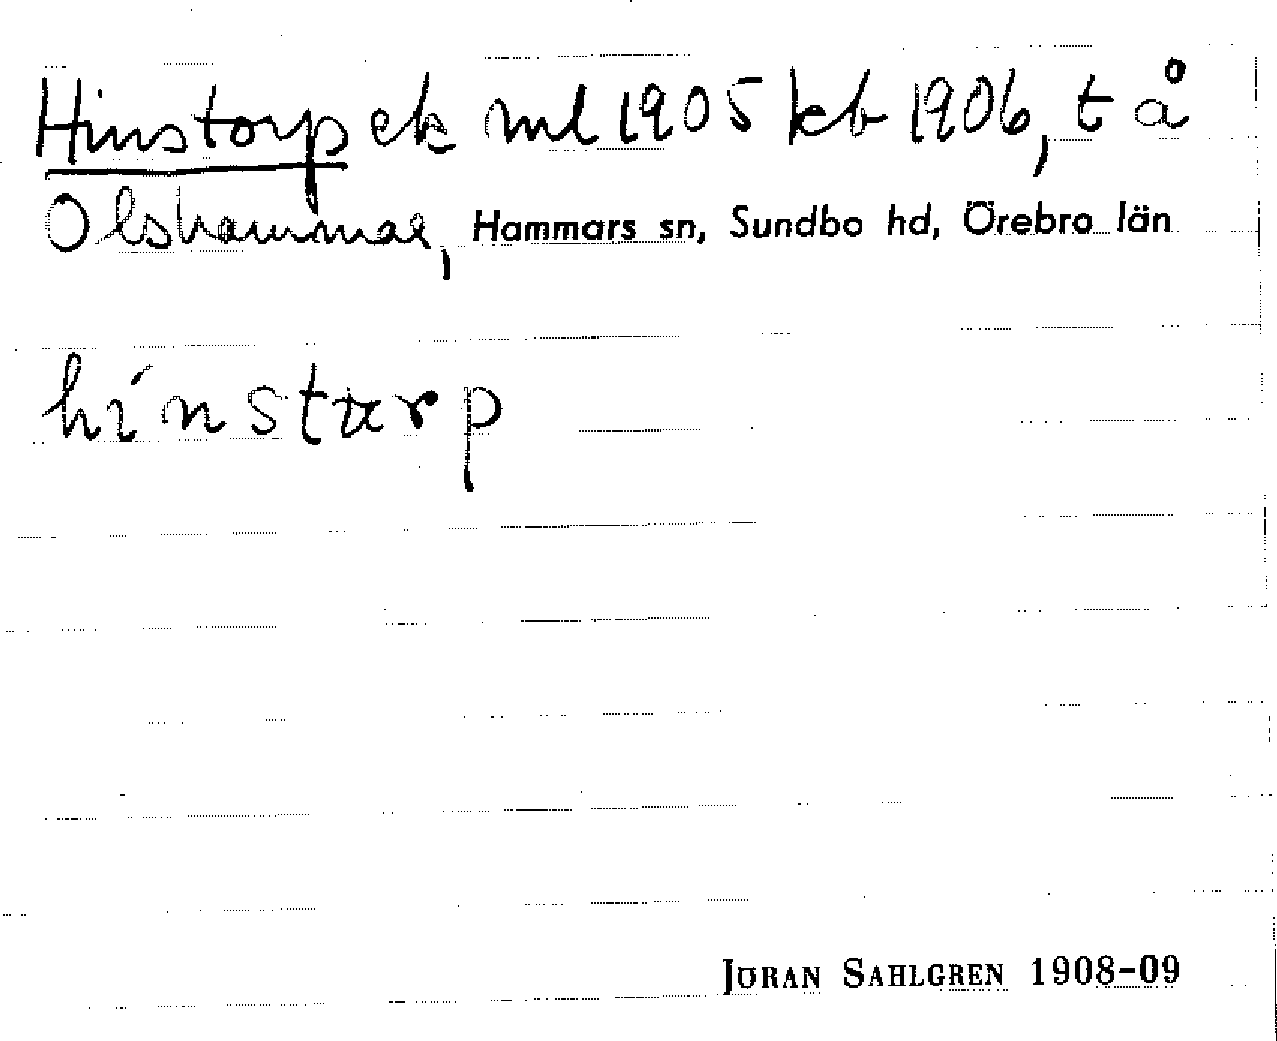 Hinstorp ek ml 1905 kb 1906, t å
Olshammar, Hammars sn, Sundbo hd, Örebro län
hínstarp
JÖRAN SAHLGREN 1908-09